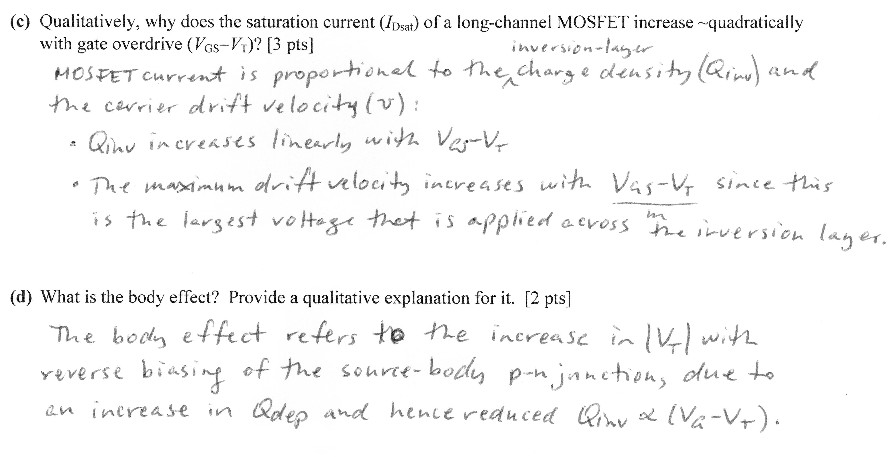 (c) Qualitatively, why does the saturation current (IDsat) of a long-channel MOSFET increase ~quadratically
with gate overdrive (VGS−VT)? [3 pts]
inversion-layer
MOSFET current is proportional to the ^ charge density (Qinv) and
the carrier drift velocity (v):
• Qinv increases linearly with VGS-VT
• The maximum drift velocity increases with VGS-VT since this
m
is the largest voltage that is applied across the inversion layer.
(d) What is the body effect? Provide a qualitative explanation for it. [2 pts]
The body effect refers to the increase in |VT| with
reverse biasing of the source-body p-n junction, due to
an increase in Qdep and hence reduced Qinv ∝ (VG-VT).